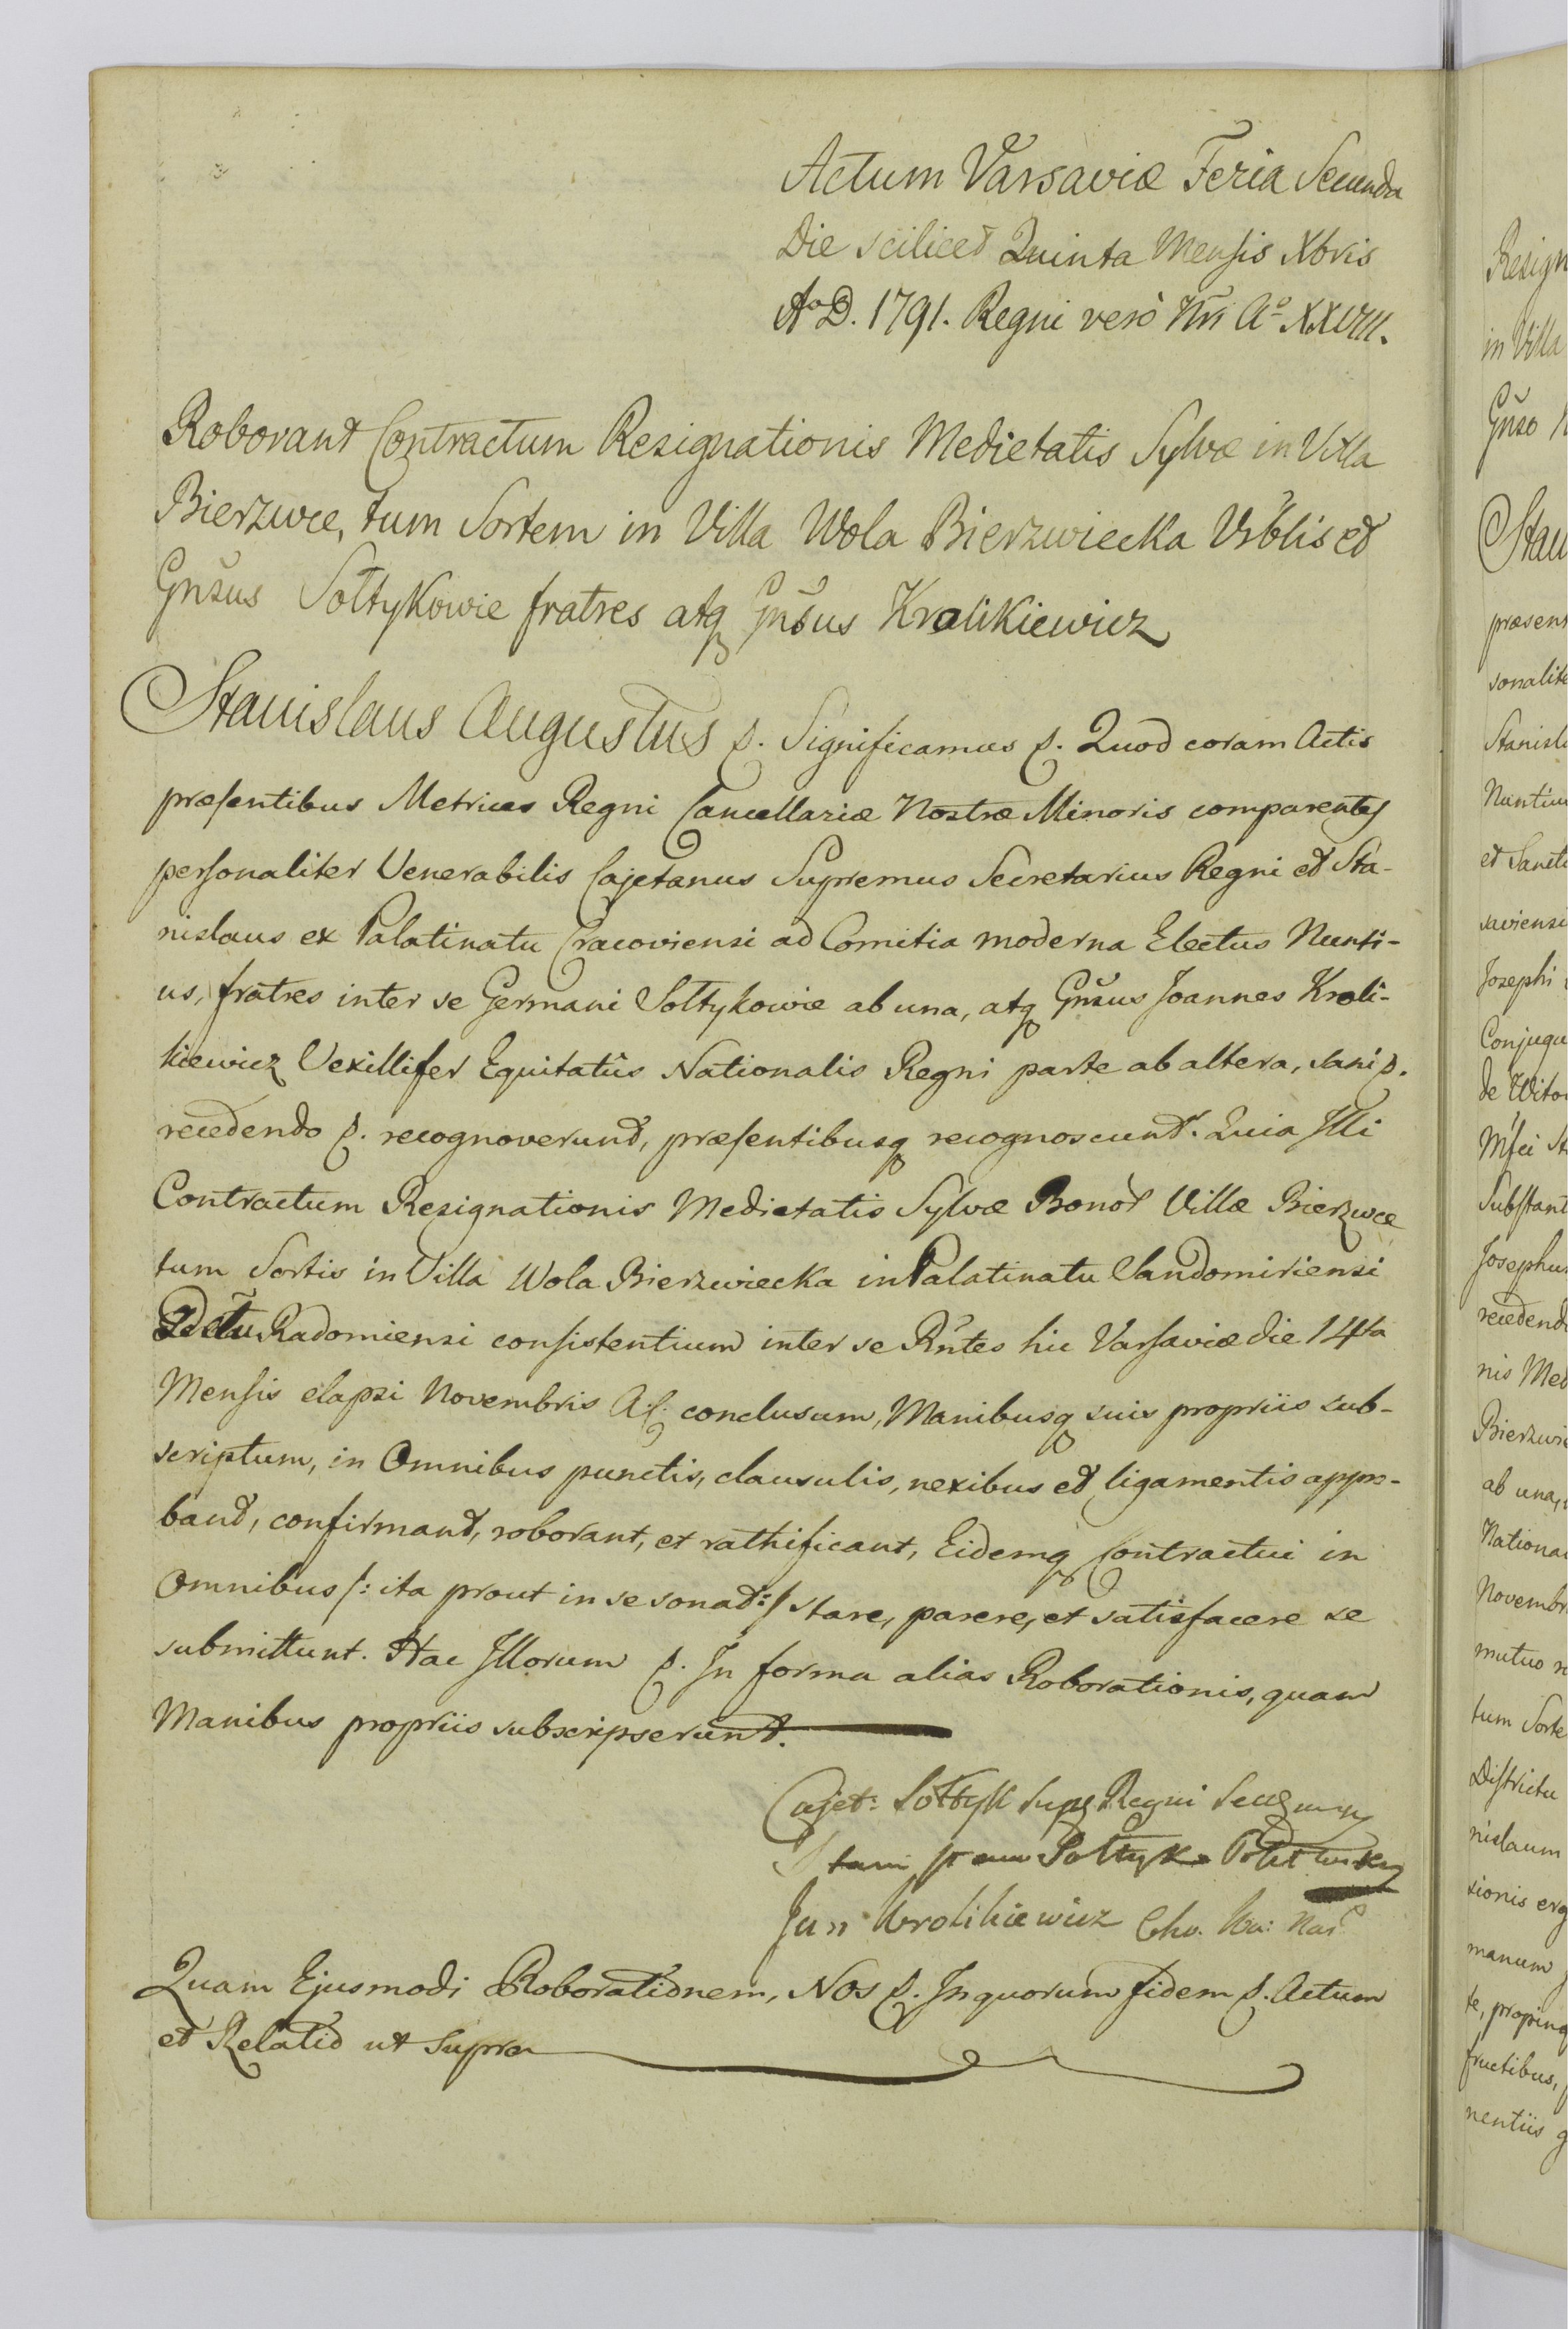 Actum Varsaviæ Feria Secunda
Die scilicet Quinta Mensis Xbris
Aº D. 1791. Regni verò Nri Aº XXVIII.
Roborant Contractum Resignationis Medietatis Sylvæ in Villa
Bierzwce, tum Sortem in Villa Wola Bierzwiecka Vrblis et
Gnsus Sołtykowie fratres atq Gnsus Krolikiewicz
Stanislaus Augustus p. Significamus p. Quod coram Actis
præsentibus Metrices Regni Cancellariæ Nostræ Minoris comparentes
personaliter Venerabilis Cajetanus Supremus Secretarius Regni et Sta-
nislaus ex Palatinatu Cracoviensi ad Comitia moderna Electus Nunti-
us, fratres inter se Germani Sołtykowie ab una, atq Gnsus Joannes Kroli-
kiewicz Vexillifer Equitatûs Nationalis Regni parte ab altera, sani p.
recedendo p. recognoverunt, præsentibusq recognoscunt. Quia Illi
Contractum Resignationis Medietatis Sylvæ Bonor Villæ Bierzwce
tum Sortis in Villa Wola Bierzwiecka in Palatinatu Sandomiriensi
Radomiensi consistentium inter se Rntes hic Varsaviæ die 14ta
Mensis elapsi Novembris A. c. conclusum, Manibusq suis propriis sub-
scriptum, in Omnibus punctis, clausulis, nexibus et ligamentis appro-
bant, confirmant, roborant, et rathificant, Eidemq Contractui in
Omnibus /: ita prout in se sonat :/ stare, parere, et satisfacere se
submittunt. Hac Illorum p. In forma alias Roborationis, quam
Manibus propriis subscripserunt.
Cajet: Sołtyk Regni
Sołtyk
Jan Krolikiewicz Cho. Ka: Nar
Quam Ejusmodi Roborationem, Nos p. In quorum fidem p. Actum
et Relatio ut Supra
Resign
in Villa
Gnso
Stani
præsent
sonalite
Stanisla
Nuntiu
et Sancti
saviensi
Josephi
Conjugu
de Wito
Mfci St
Substant
Josephus
recedend
nis Med
Bierzwie
ab una,
National
Novembr
mutuo
tum Sorte
Districtu
nislaum
sionis erg
manum
te, propinq
fructibus,
nentiis